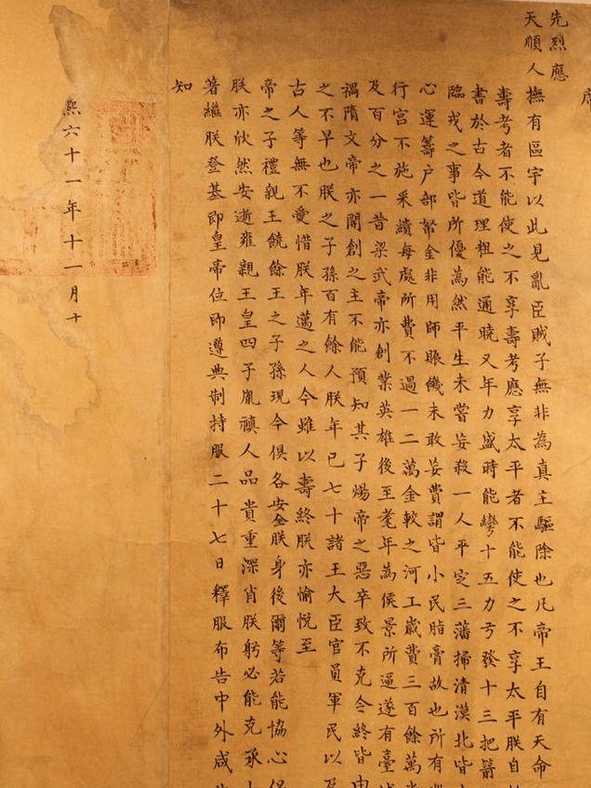 先烈應
天順人撫有區宇以此見亂臣賊子無非為真主驅除也凡帝王自有天命
壽考者不能使之不享壽考應享太平者不能使之不享太平朕自
書於古今道理粗能通曉又年力盛時能彎十五力弓發十三把箭
臨戎之事皆所優為然平生未嘗妄殺一人平定三藩掃清漠北皆
心運籌戶部帑金非用師賑饑未敢妄費謂皆小民脂膏故也所有
行宮不施采繢每處所費不過一二萬金較之河工歲費三百餘萬
及百分之一昔梁武帝亦創業英雄後至耄年為侯景所逼遂有臺
禍隋文帝亦開創之主不能預知其子煬帝之惡卒致不克令終皆由
之不早也朕之子孫百有餘人朕年已七十諸王大臣官員軍民以及
古人等無不愛惜朕年邁之人今雖以壽終朕亦愉悅至
帝之子禮親王饒餘王之子孫現今俱各安全朕身後爾等若能協心保
朕亦欣然安逝雍親王皇四子胤禛人品貴重深肖朕躬必能克承
著繼朕登基即皇帝位即遵典制持服二十七日釋服布告中外咸
知
熙六十一年十一月十